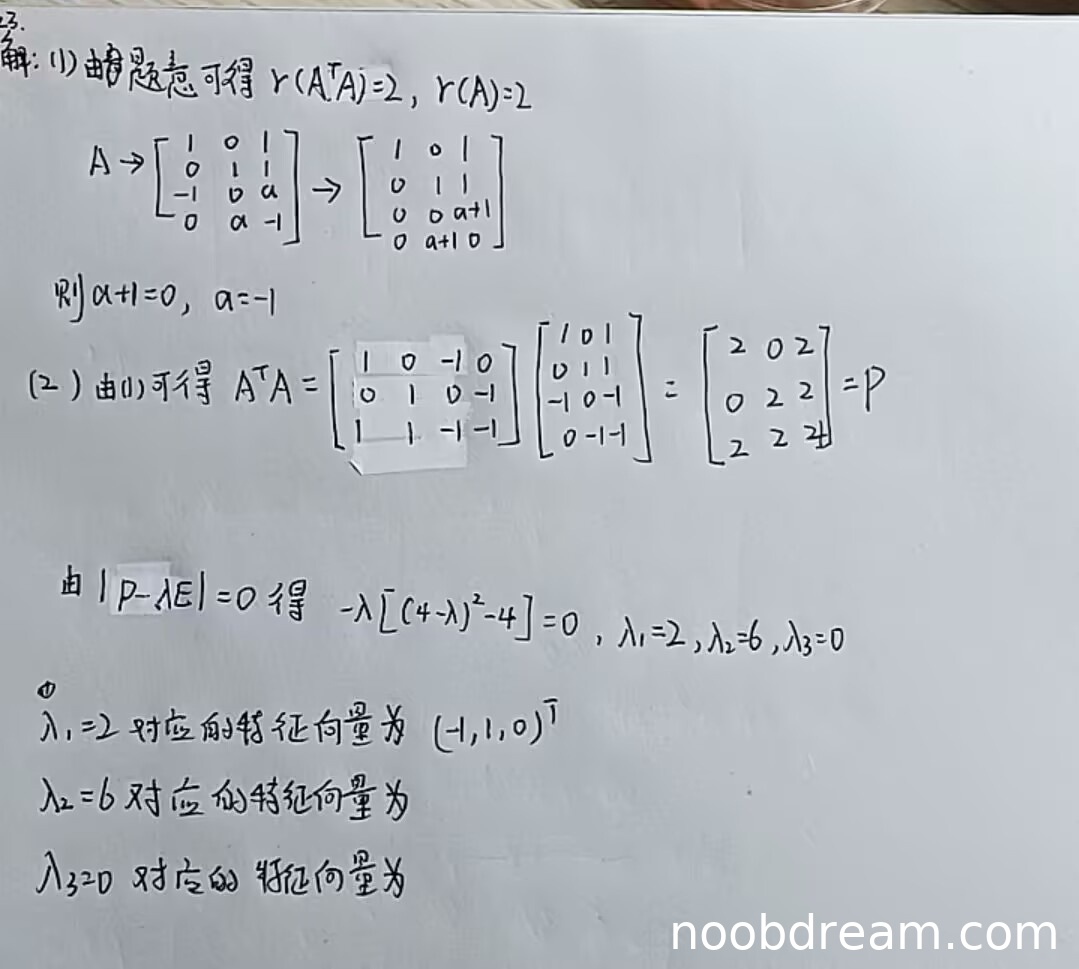 23.
解:(1)由题意可得 r(AᵀA)=2, r(A)=2
A → [1 0 1; 0 1 1; -1 0 a; 0 a -1] → [1 0 1; 0 1 1; 0 0 a+1; 0 a+1 0]
则a+1=0, a=-1
(2) 由(1)可得 AᵀA = [1 0 -1 0; 0 1 0 -1; 1 1 -1 -1] [1 0 1; 0 1 1; -1 0 -1; 0 -1 -1] = [2 0 2; 0 2 2; 2 2 4] = P
由 |P-λE|=0 得 -λ[(4-λ)²-4]=0, λ₁=2, λ₂=6, λ₃=0
①
λ₁=2 对应的特征向量为 (-1,1,0)ᵀ
λ₂=6 对应的特征向量为
λ₃=0 对应的 特征向量为
noobdream.com